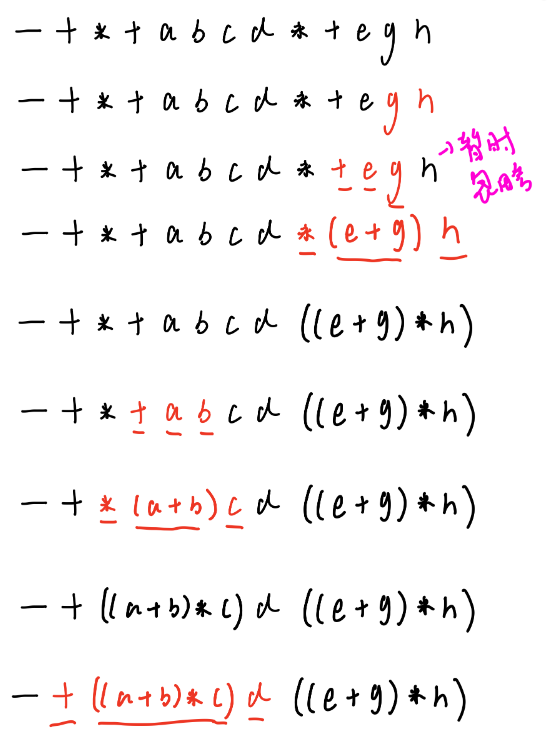 − + * + a b c d * + e g h
− + * + a b c d * + e g h
− + * + a b c d * + e g h → 暂时
− + * + a b c d * (e + g) h
− + * + a b c d ((e + g) * h)
− + * + a b c d ((e + g) * h)
− + * (a + b) c d ((e + g) * h)
− + ((a + b) * c) d ((e + g) * h)
− + ((a + b) * c) d ((e + g) * h)